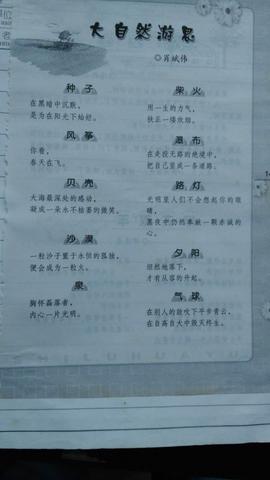 大自然游思
◎肖斌伟
种子
在黑暗中沉默，
是为在阳光下灿烂。
风筝
你看，
春天在飞。
贝壳
大海最深处的感动，
凝成一朵永不枯萎的微笑。
沙漠
一粒沙子置于永恒的孤独，
便会成为一粒火。
泉
胸怀磊落者，
内心一片光明。
柴火
用一生的力气，
扶正一缕炊烟。
瀑布
在走投无路的绝境中，
把自己竖成一条道路。
路灯
光明里人们不会想起你的眼
睛，
黑夜中仍然奉献一颗赤诚的
心。
夕阳
坦然地落下，
才有从容的升起。
气球
在别人的鼓吹下平步青云，
在自高自大中毁灭终生。